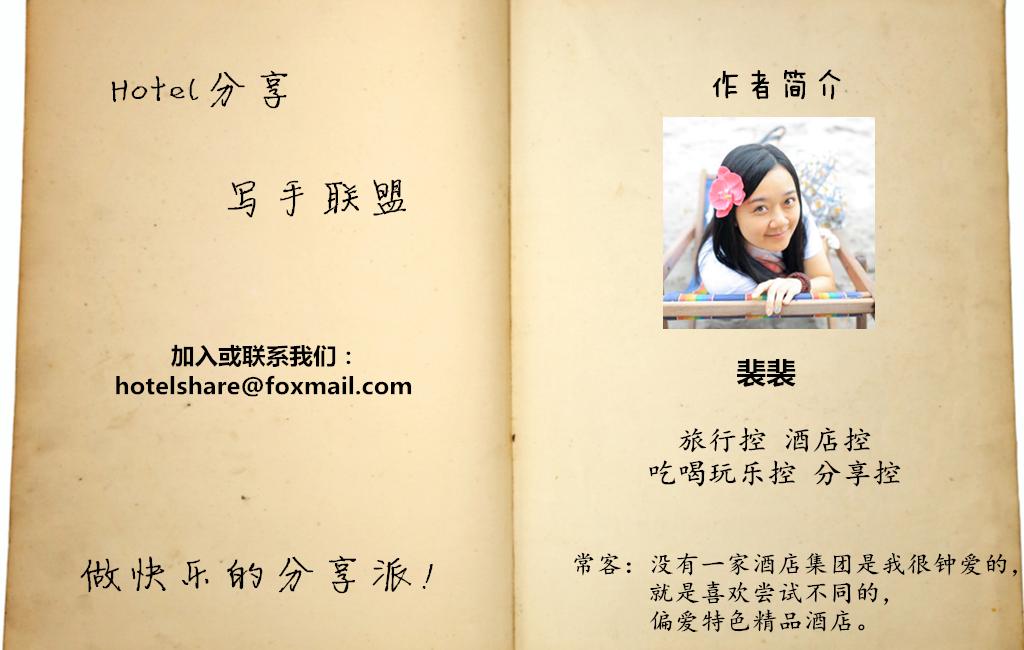 Hotel分享
写手联盟
加入或联系我们：
hotelshare@foxmail.com
做快乐的分享派！
作者简介
裴裴
旅行控 酒店控
吃喝玩乐控 分享控
常客：没有一家酒店集团是我很钟爱的，
就是喜欢尝试不同的，
偏爱特色精品酒店。